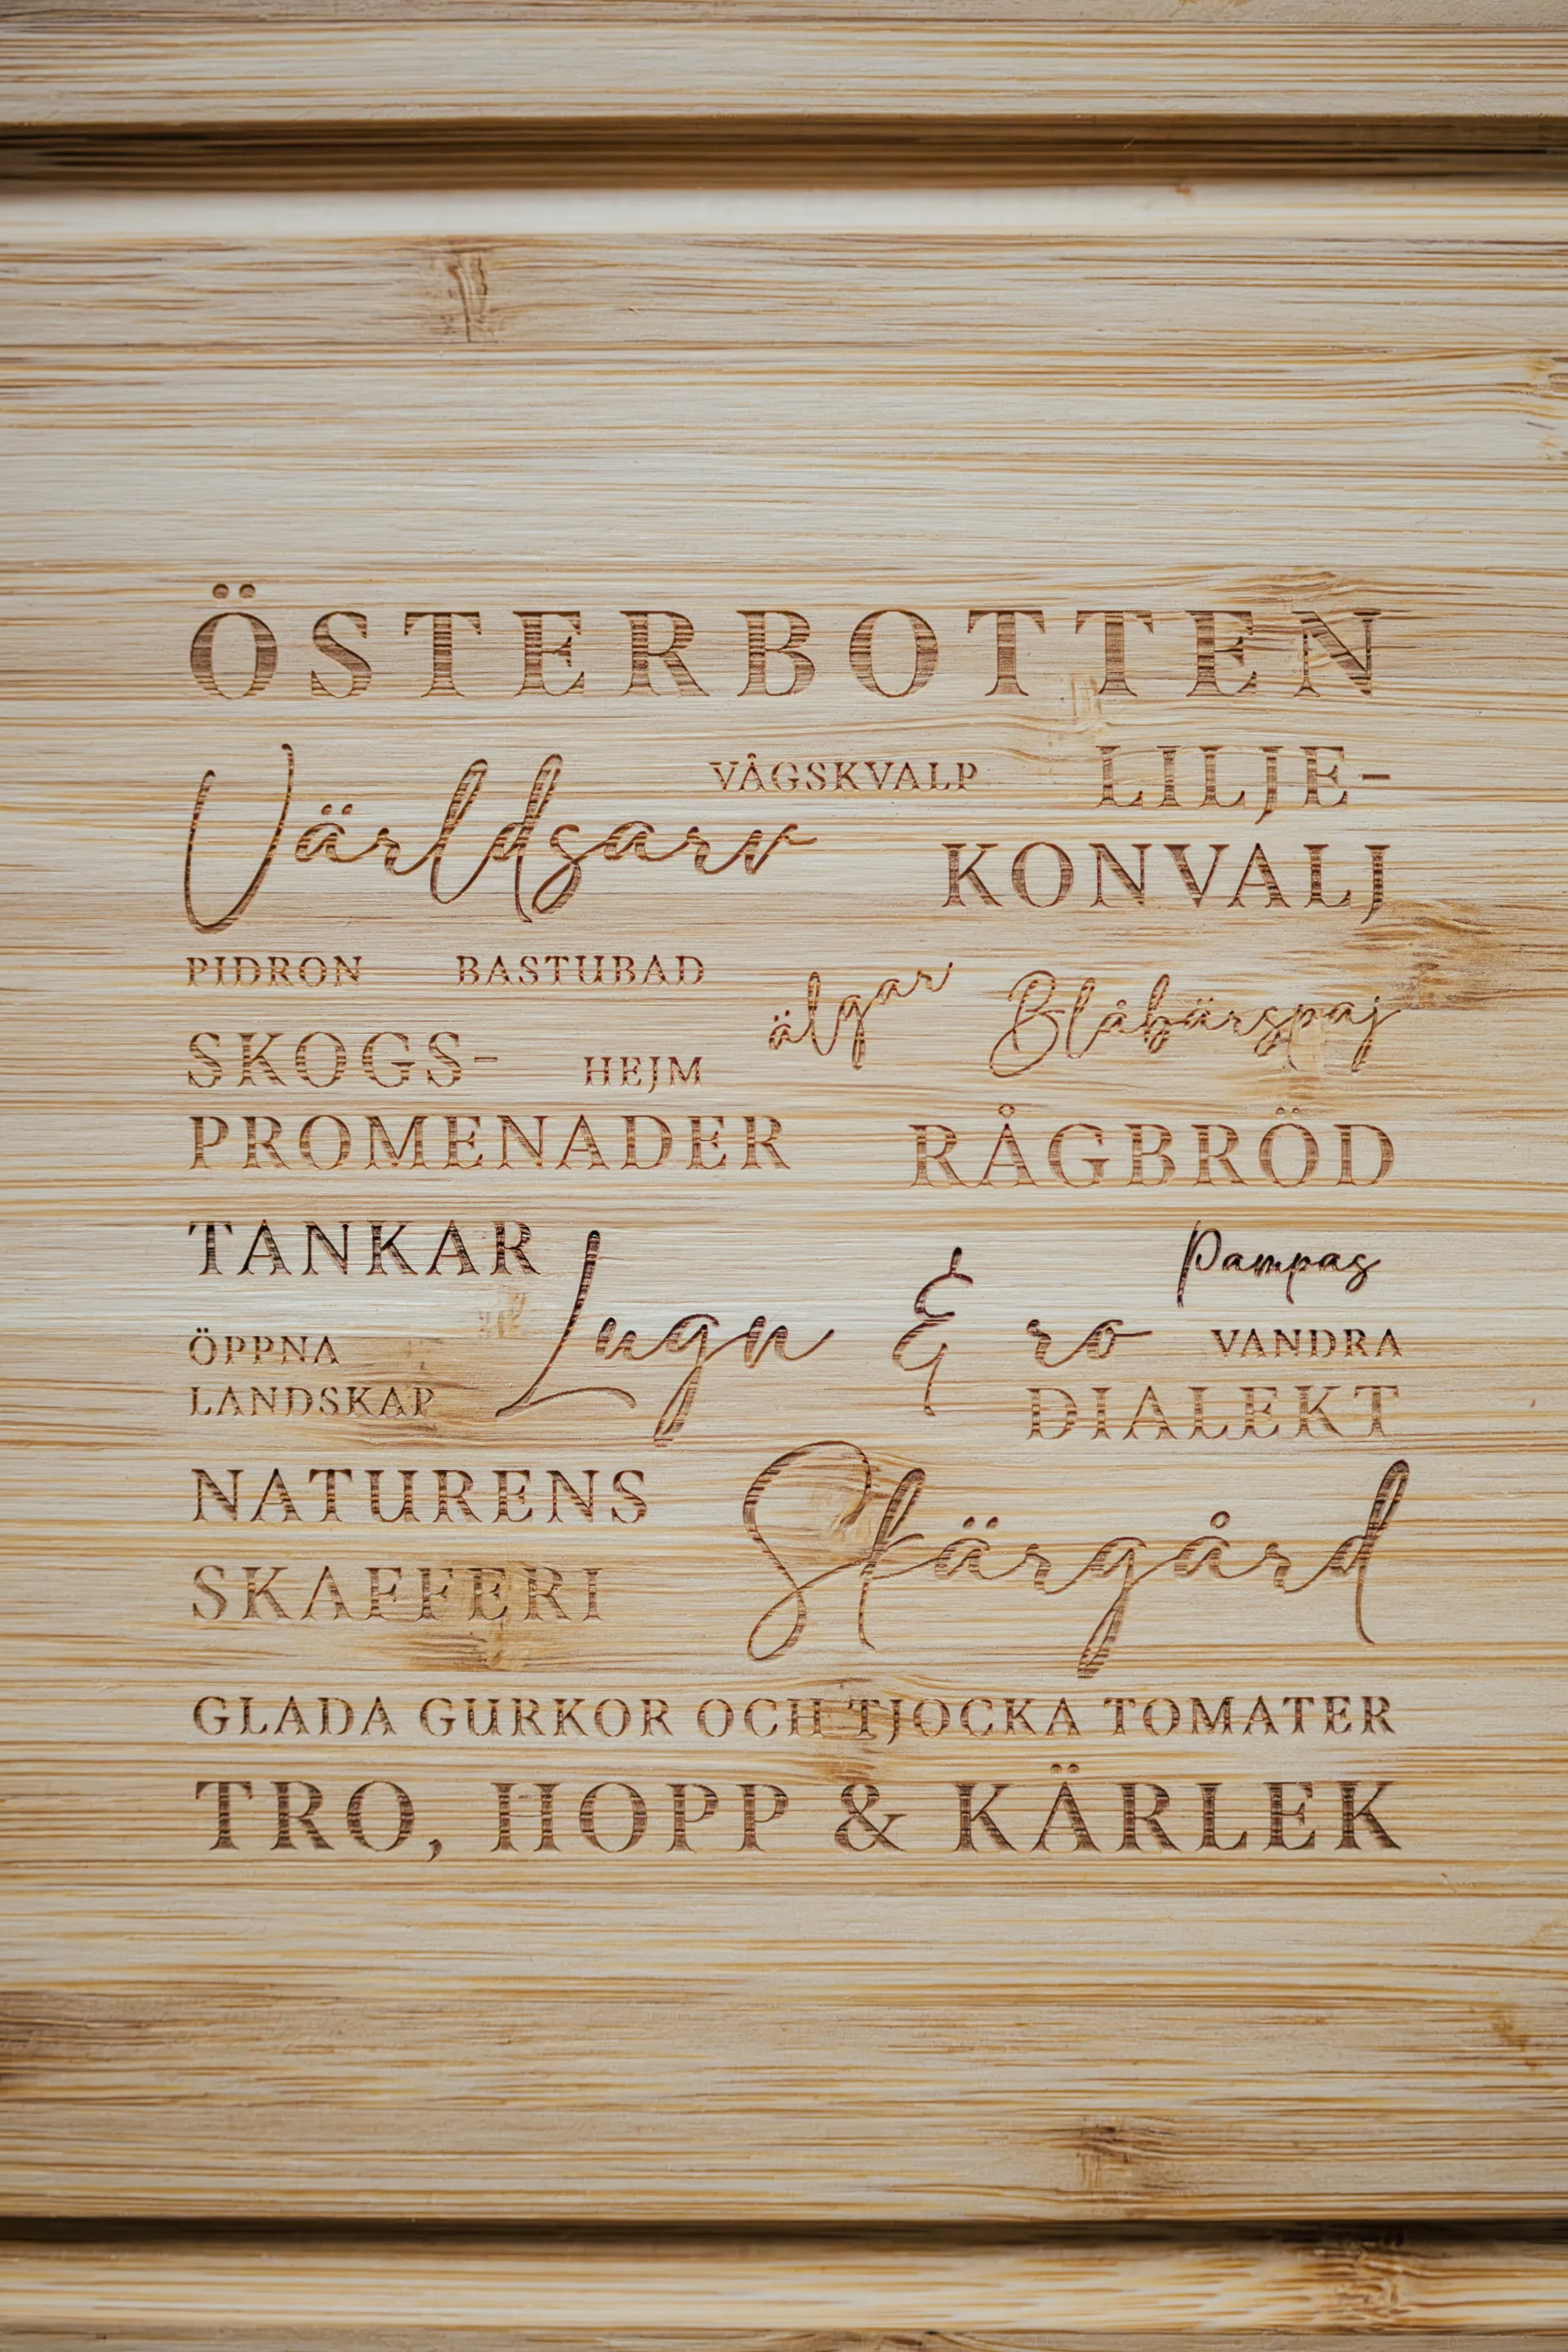 ÖSTERBOTTEN
Världsarv
VÅGSKVALP
LILJE-
KONVALJ
PIDRON
BASTUBAD
älgar
Blåbärspaj
SKOGS-
PROMENADER
HEJM
RÅGBRÖD
TANKAR
Lugn & ro
Pampas
ÖPPNA
LANDSKAP
VANDRA
DIALEKT
NATURENS
SKAFFERI
Skärgård
GLADA GURKOR OCH TJOCKA TOMATER
TRO, HOPP & KÄRLEK